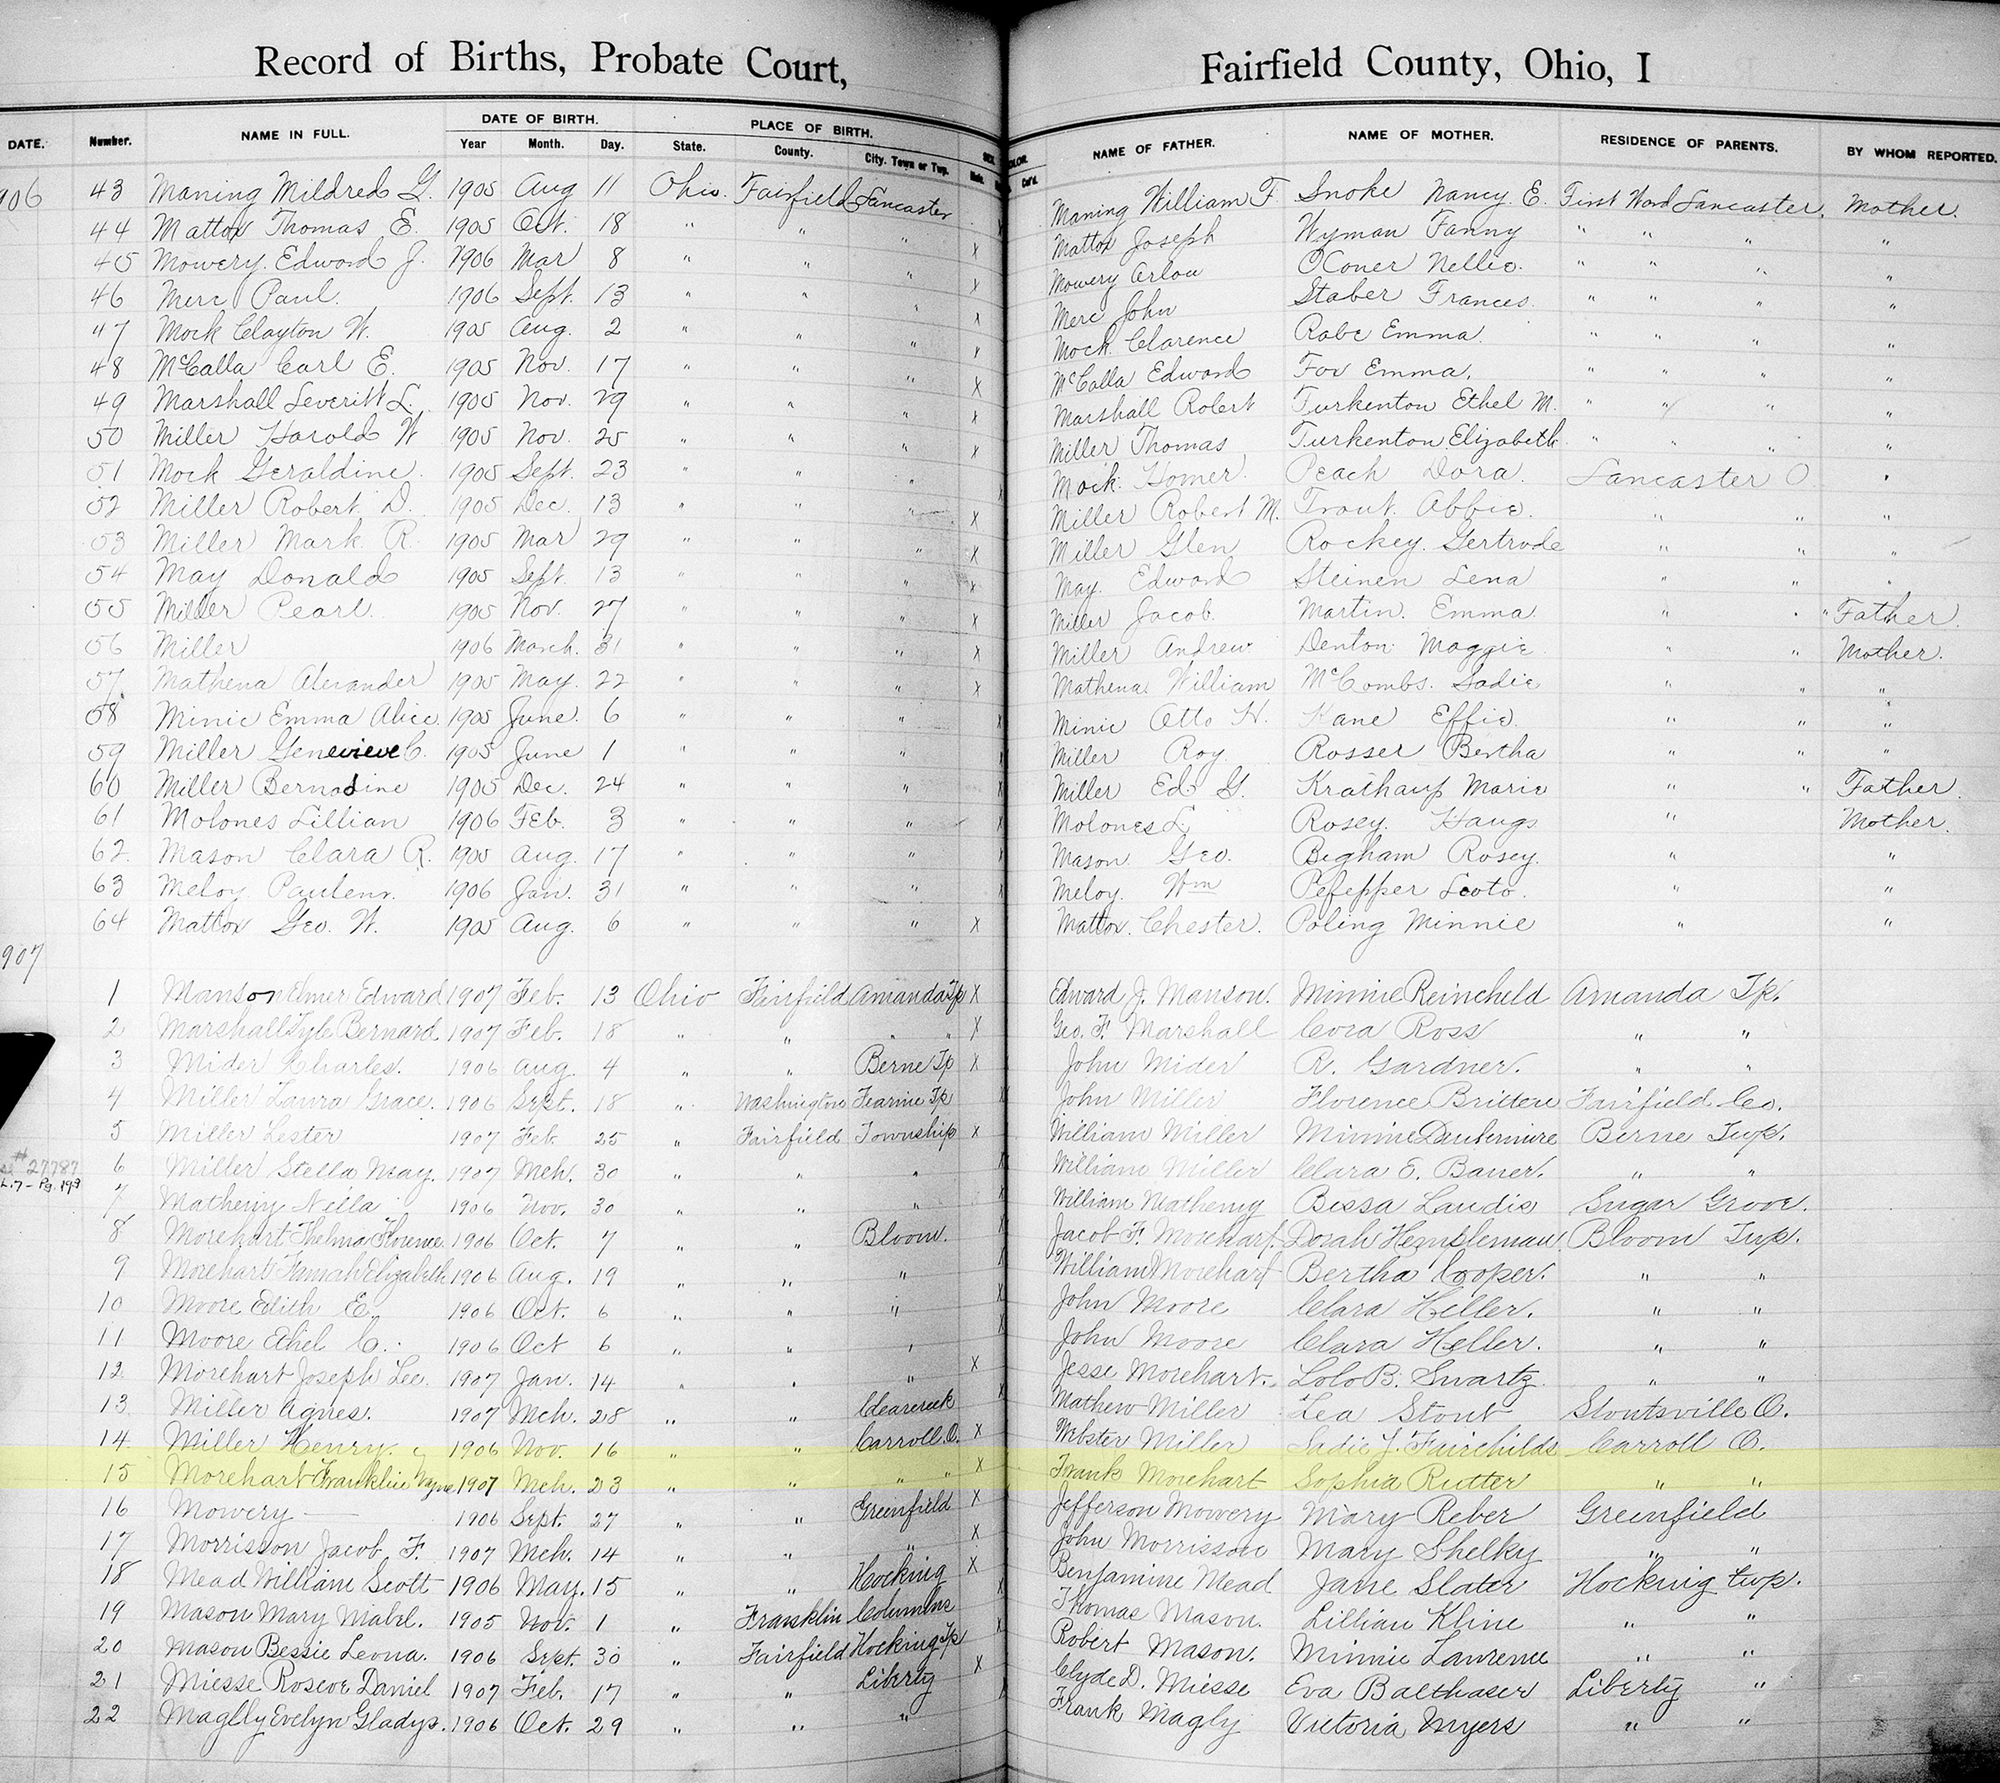 Record of Births, Probate Court, Fairfield County, Ohio, I
DATE. Number. NAME IN FULL. DATE OF BIRTH. PLACE OF BIRTH. SEX. NAME OF FATHER. NAME OF MOTHER. RESIDENCE OF PARENTS. BY WHOM REPORTED.
Year Month. Day. State. County. City, Town or Twp. Male. Col'd.
906 43 Maning Mildred G. 1905 Aug 11 Ohio. Fairfield Lancaster Maning William F. Snoke Nancy E. First Ward Lancaster. Mother.
44 Mattox Thomas E. 1905 Oct. 18 " " " x Mattox Joseph Wyman Fanny " " " "
45 Mowery Edward J. 1906 Mar 8 " " " x Mowery Arlow OConer Nellie. " " " "
46 Merc Paul. 1906 Sept. 13 " " " x Merc John Staber Frances. " " " "
47 Mock Clayton W. 1905 Aug. 2 " " " x Mock Clarence Rabe Emma. " " " "
48 McCalla Carl E. 1905 Nov. 17 " " " x McCalla Edward Fox Emma. " " " "
49 Marshall Leveritt L. 1905 Nov. 29 " " " x Marshall Robert Turkenton Ethel M. " " " "
50 Miller Harold W 1905 Nov. 25 " " " x Miller Thomas Turkenton Elizabeth " " " "
51 Mock Geraldine. 1905 Sept. 23 " " " x Mock Homer Peach Dora. Lancaster O "
52 Miller Robert D. 1905 Dec. 13 " " " x Miller Robert M. Trout Abbie. " " "
53 Miller Mark R. 1905 Mar 29 " " " x Miller Glen Rockey Gertrude " " "
54 May Donald 1905 Sept. 13 " " " x May. Edward Steinen Lena " " "
55 Miller Pearl. 1905 Nov. 27 " " " x Miller Jacob. Martin. Emma " " " Father.
56 Miller 1906 March. 31 " " " x Miller Andrew Denton Maggie " " Mother.
57 Mathena Alexander 1905 May. 22 " " " x Mathena William McCombs. Sadie " " "
58 Minie Emma Alice. 1905 June. 6 " " " x Minie Otto H. Kane Effie. " " "
59 Miller Genevieve C. 1905 June 1 " " " x Miller Roy Rosser Bertha " " "
60 Miller Bernadine 1905 Dec. 24 " " " x Miller Ed G. Krathaup Marie " " Father.
61 Molones Lillian 1906 Feb. 3 " " " x Molones L. Rosey. Haugs " Mother.
62. Mason Clara R. 1905 Aug. 17 " " " x Mason Geo. Bigham Rosey. " "
63 Meloy 1906 Jan. 31 " " " x Meloy. Wm Pefepper " "
64 Mattox Geo. W. 1905 Aug. 6 " " " x Mattox. Chester. Poling Minnie " "
907
1 Manson Elmer Edward 1907 Feb. 13 Ohio Fairfield Amanda Tp x Edward J. Manson. Minnie Reincheld Amanda Tp.
2 Marshall Lyle Bernard 1907 Feb. 18 " " " " x Geo. F. Marshall Cora Ross " "
3 Mider Charles. 1906 Aug. 4 " " Berne Tp x John Mider R. Gardner. " "
4 Miller Laura Grace. 1906 Sept. 18 " Washington Fearing Tp x John Miller Florence Britten Fairfield Co.
5 Miller Lester 1907 Feb. 25 " Fairfield Township x William Miller Minnie Berne Twp.
#27787 6 Miller Stella May. 1907 Mch. 30 " " " William Miller Clara E. Baner. " "
7 Matheny Nella 1906 Nov. 30 " " " x William Matheny Bessa Landis Sugar Grove.
8 Morehart Thelma Florence 1906 Oct. 7 " " Bloom. x Jacob F. Morehart Dorah Hempleman Bloom Twp.
9 Morehart Hannah Elizabeth 1906 Aug. 19 " " " x William Morehart Bertha Cooper. " "
10 Moore Edith E. 1906 Oct. 6 " " " x John Moore Clara Heller. " "
11 Moore Ethel C. 1906 Oct 6 " " " x John Moore Clara Heller. " "
12. Morehart Joseph Lee. 1907 Jan. 14 " " " x Jesse Morehart. Lolo B. Swartz " "
13. Miller Agnes. 1907 Mch. 28 " " Clearcreek x Mathew Miller Lea Stout Stoutsville O.
14. Miller Henry. 1906 Nov. 16 " " Carroll. O. x Webster Miller Sadie J. Fairchilds Carroll O.
15 Morehart Franklin Wayne 1907 Mch. 23 " " " " x Frank Morehart Sophia Rutter " "
16 Mowery — 1906 Sept. 27 " " Greenfield x Jefferson Mowery Mary Reber Greenfield
17 Morrison Jacob F. 1907 Mch. 14 " " " x John Morrison Mary Shelky " "
18 Mead William Scott 1906 May. 15 " " Hocking x Benjamine Mead Jane Slater Hocking twp.
19 Mason Mary Mabel. 1905 Nov. 1 " Franklin Columbus x Thomas Mason. Lillian Kline " "
20 Mason Bessie Leona. 1906 Sept. 30 " Fairfield Hocking Tp x Robert Mason. Minnie Lawrence " "
21 Miesse Roscoe Daniel 1907 Feb. 17 " " Liberty x Clyde D. Miesse Eva Balthaser Liberty "
22 Maglly Evelyn Gladys. 1906 Oct. 29 " " " Frank Magly Victoria Myers " "